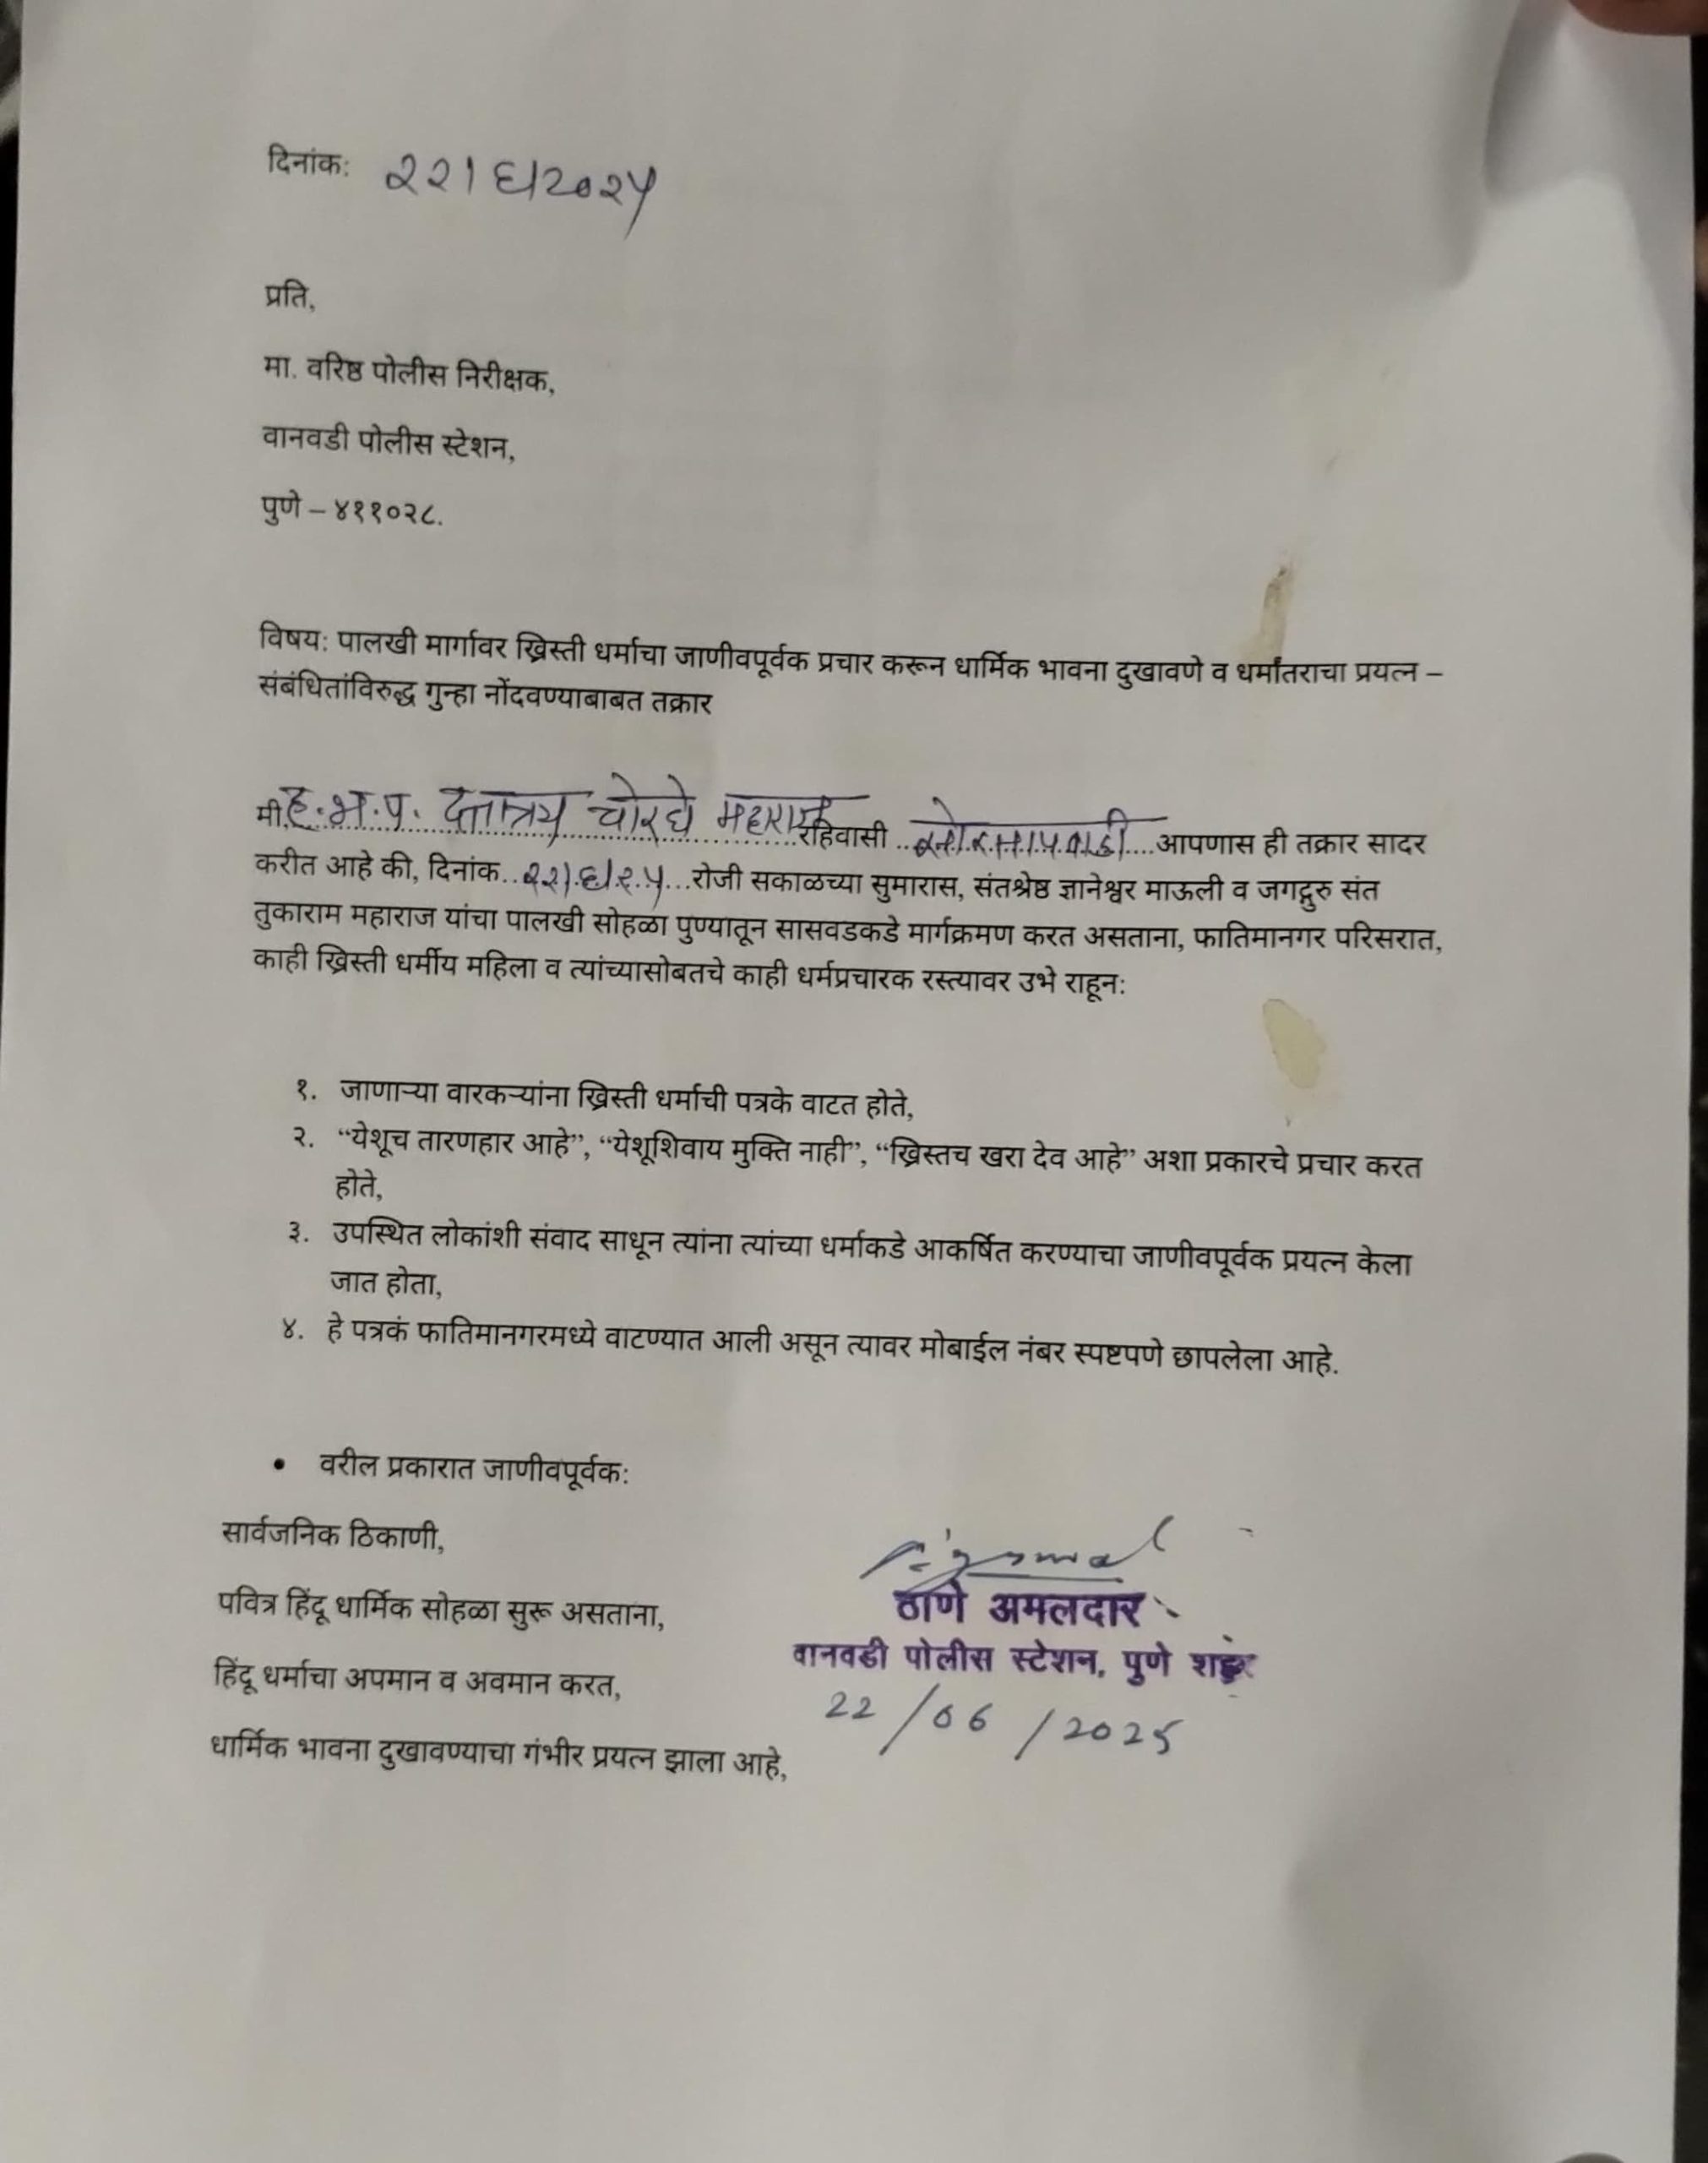 दिनांक: २२/६/२०२५
प्रति,
मा. वरिष्ठ पोलीस निरीक्षक,
वानवडी पोलीस स्टेशन,
पुणे – ४११०२८.
विषय: पालखी मार्गावर ख्रिस्ती धर्माचा जाणीवपूर्वक प्रचार करून धार्मिक भावना दुखावणे व धर्मांतराचा प्रयत्न –
संबंधितांविरुद्ध गुन्हा नोंदवण्याबाबत तक्रार
मी ह.भ.प. दत्तात्रय चोरघे महाराज रहिवासी आपणास ही तक्रार सादर
करीत आहे की, दिनांक..२२/६/२५...रोजी सकाळच्या सुमारास, संतश्रेष्ठ ज्ञानेश्वर माऊली व जगद्गुरु संत
तुकाराम महाराज यांचा पालखी सोहळा पुण्यातून सासवडकडे मार्गक्रमण करत असताना, फातिमानगर परिसरात,
काही ख्रिस्ती धर्मीय महिला व त्यांच्यासोबतचे काही धर्मप्रचारक रस्त्यावर उभे राहून:
१. जाणाऱ्या वारकऱ्यांना ख्रिस्ती धर्माची पत्रके वाटत होते,
२. “येशूच तारणहार आहे”, “येशूशिवाय मुक्ति नाही”, “ख्रिस्तच खरा देव आहे” अशा प्रकारचे प्रचार करत
होते,
३. उपस्थित लोकांशी संवाद साधून त्यांना त्यांच्या धर्माकडे आकर्षित करण्याचा जाणीवपूर्वक प्रयत्न केला
जात होता,
४. हे पत्रकं फातिमानगरमध्ये वाटण्यात आली असून त्यावर मोबाईल नंबर स्पष्टपणे छापलेला आहे.
• वरील प्रकारात जाणीवपूर्वक:
सार्वजनिक ठिकाणी,
पवित्र हिंदू धार्मिक सोहळा सुरू असताना,
हिंदू धर्माचा अपमान व अवमान करत,
धार्मिक भावना दुखावण्याचा गंभीर प्रयत्न झाला आहे,
ठाणे अमलदार
वानवडी पोलीस स्टेशन, पुणे शहर
22/06/2025